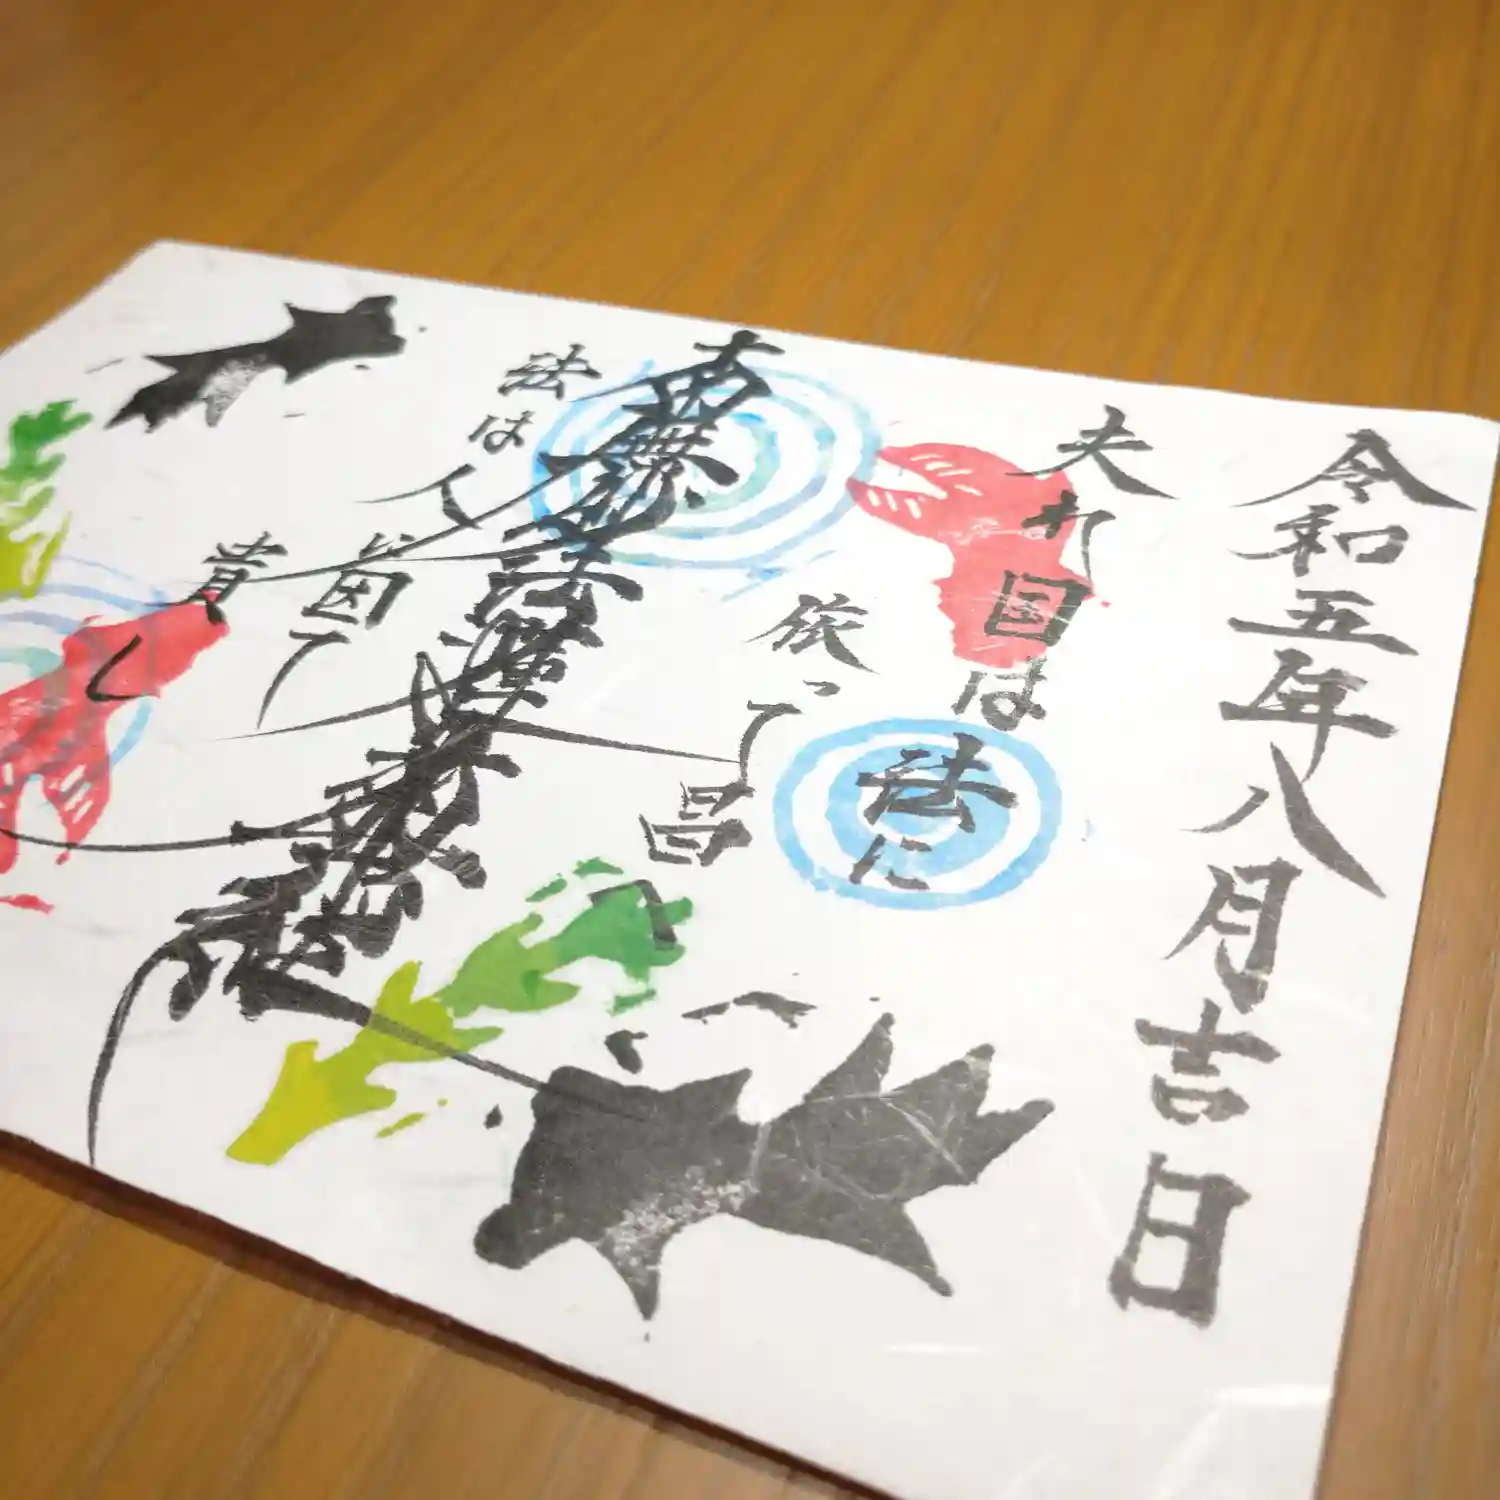 令和五年八月吉日
夫れ国は法に
依って昌
南無妙法蓮華経
法は人
に因て
貴し